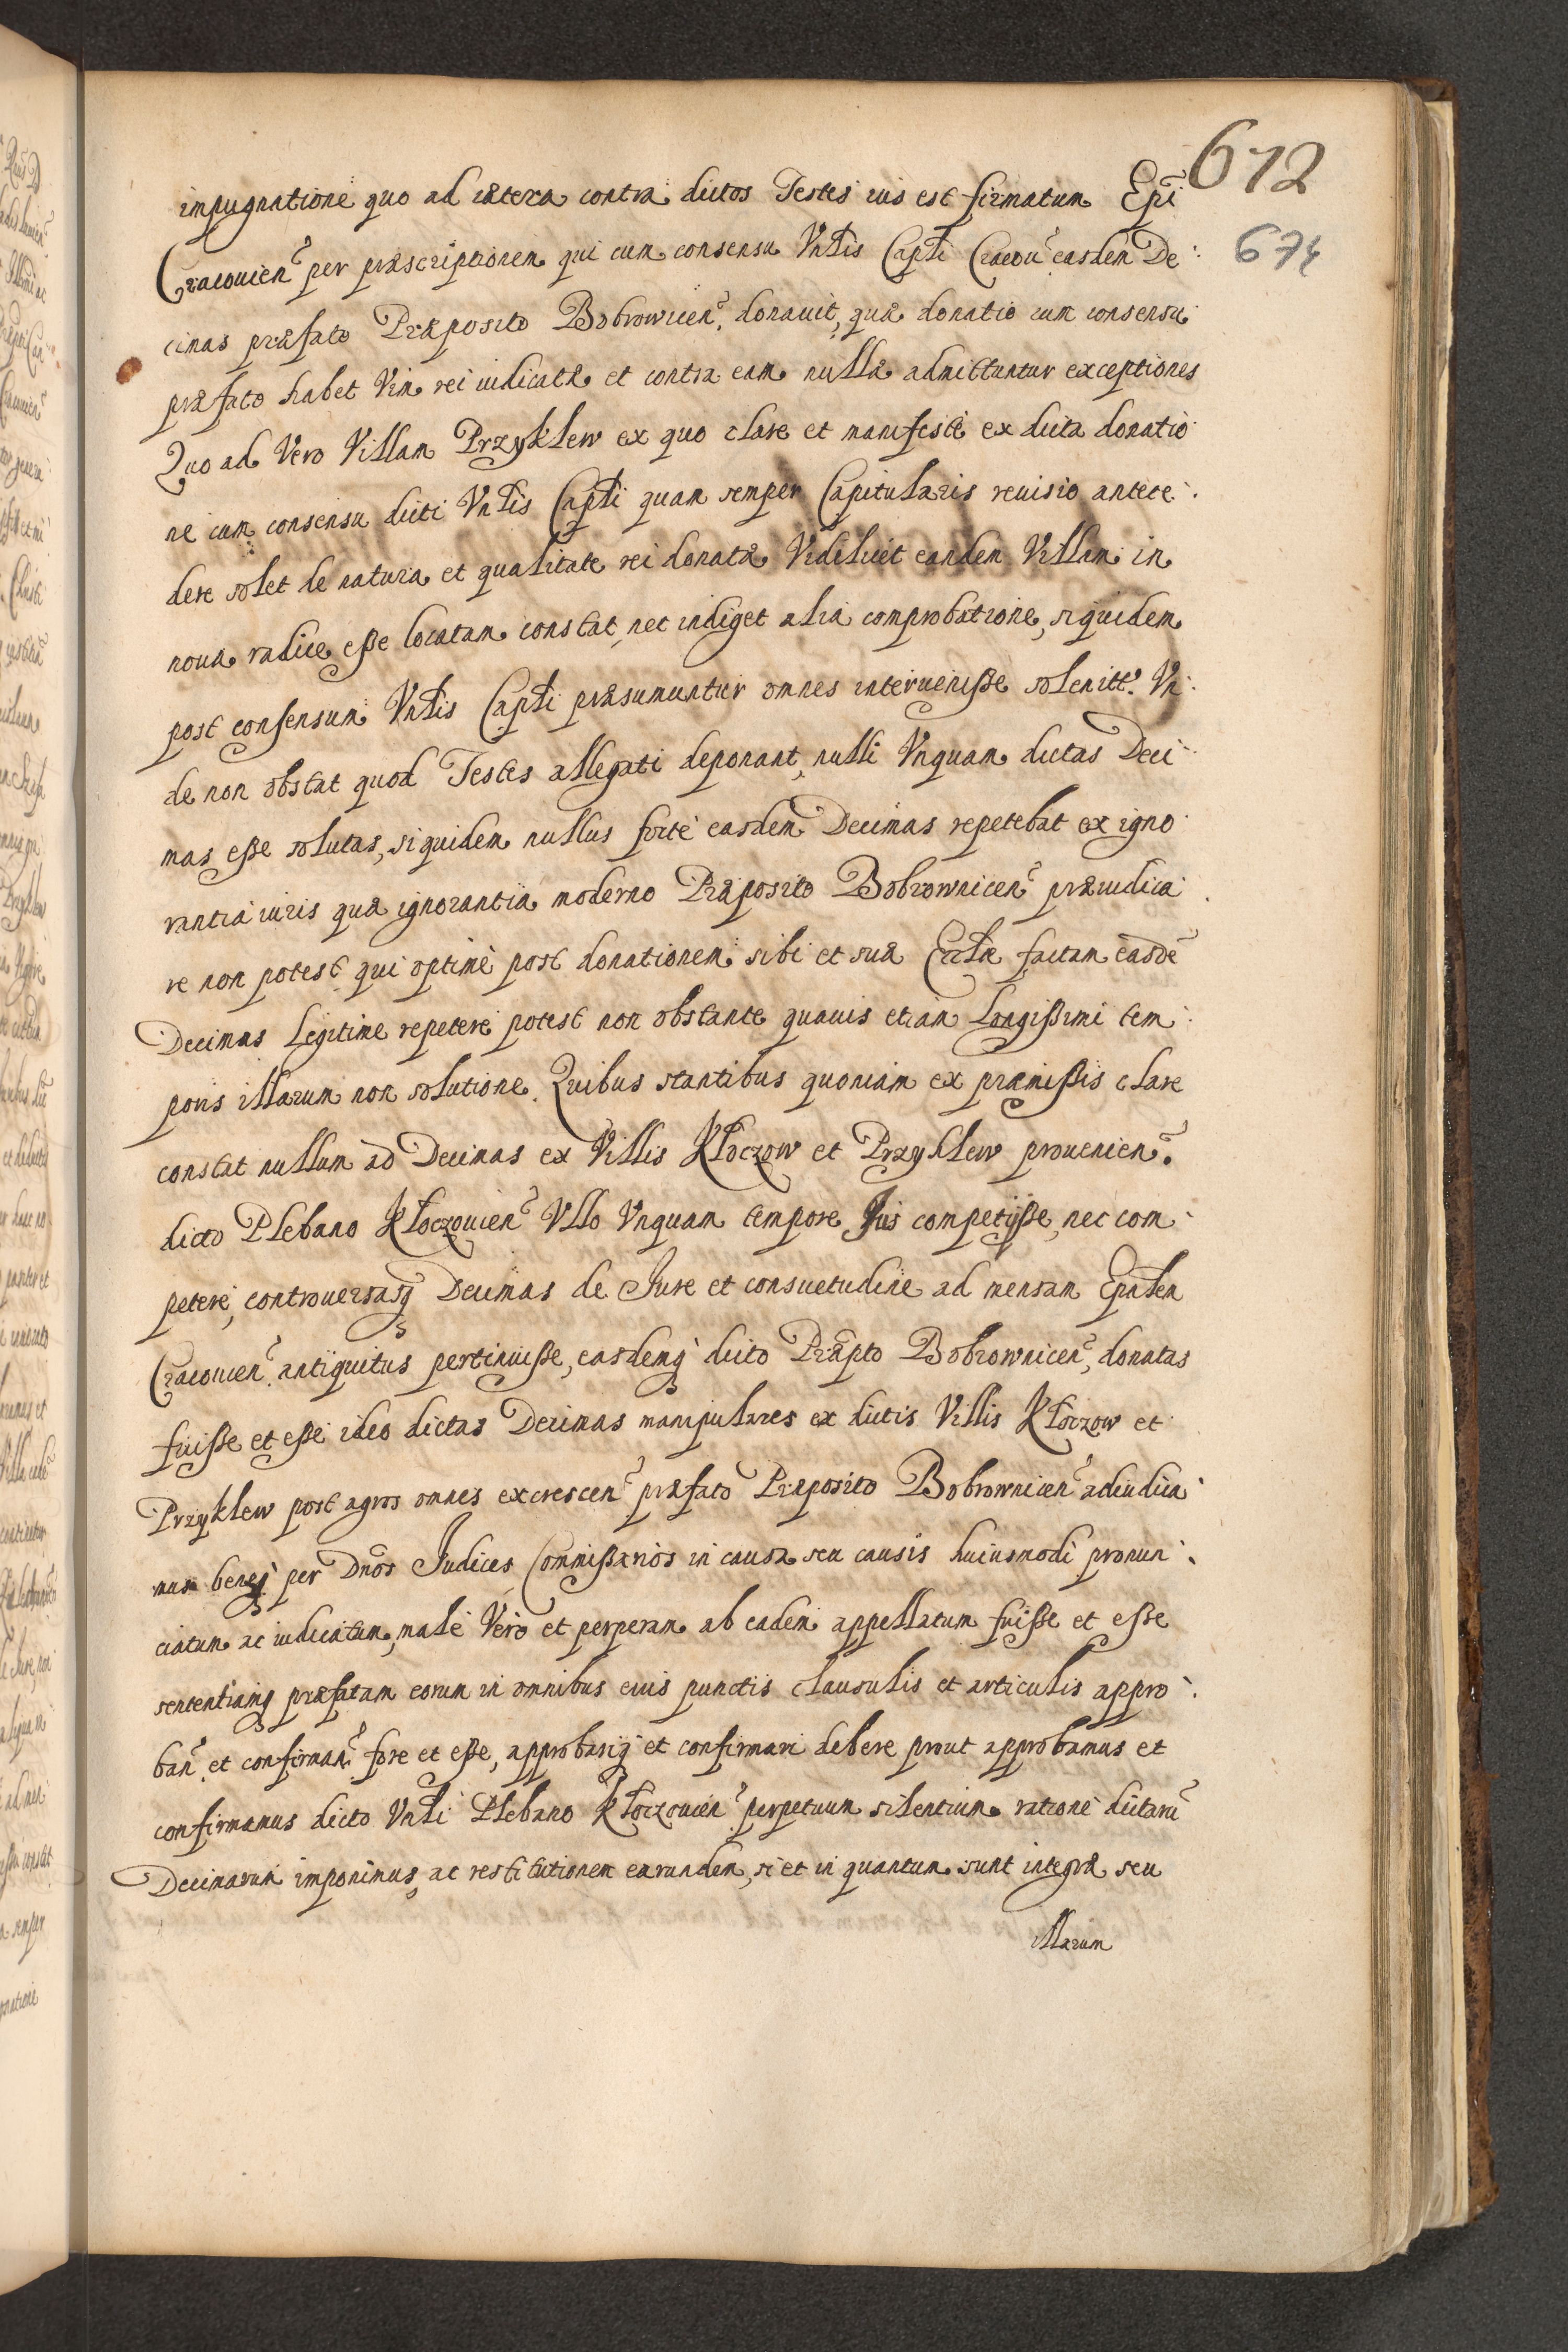 672
674
impugnatione quo ad cætera contra dictos Testes ius est firmatum Epĩ
Cracouien̄ per præscriptionem qui cum consensu Vnłis Capłi Cracou̅ easdem De
cimas præfato Præposito Bobrownicen̄, donauit, quæ donatio cum consensu
præfato habet Vim rei iudicatæ et contra eam nullæ admittuntur exceptiones
Quo ad Vero Villam Przyklew ex quo clare et manifeste ex dicta donatio
ne cum consensu dicti Vnłis Capłi quam semper Capitularis reuisio antece
dere solet de natura et qualitate rei donatæ Videlicet eandem Villam in
noua radice esse locatam constat, nec indiget alia comprobatione, siquidem
post consensum Vnłis Capłi præsumuntur omnes interuenisse solenitt. Vn
de non obstat quod Testes allegati deponant, nulli Vnquam dictas Deci
mas esse solutas, siquidem nullus forte easdem Decimas repetebat ex igno
rantia iuris quæ ignorantia moderno Præposito Bobrownicen̄ præiudica
re non potest qui optime post donationem sibi et suæ Eccłæ factam easdē
Decimas Legitime repetere potest non obstante quauis etiam Longissimi tem
poris illarum non solutione. Quibus stantibus quoniam ex præmissis clare
constat nullum ad Decimas ex Villis Kłoczow et Przyklew prouenien̄.
dicto Plebano Kłoczouien̄ Vllo Vnquam tempore Jus competijsse, nec com
petere, controuersasq; Decimas de Jure et consuetudine ad mensam Epałem
Cracouien̄. antiquitus pertinuisse, easdemq; dicto Præpto Bobrownicen̄, donatas
fuisse et esse ideo dictas Decimas manipulares ex dictis Villis Kłoczow et
Przyklew post agros omnes excrescen̄ præfato Præposito Bobrownicen̄ adiudica
mus beneq; per Dnōs Judices Commissarios in causa seu causis huiusmodi pronun
ciatum ac iudicatum, male Vero et perperam ab eadem appellatum fuisse et esse
sententiamq; præfatam eorum in omnibus eius punctis clausulis et articulis appro
ban̄. et confirman̄. fore et esse, approbariq; et confirmari debere prout approbamus et
confirmamus dicto Vnłi Plebano Kłoczouien̄ perpetuum silentium ratione dictarū
Decimarum imponimus, ac restitutionem earundem, si et in quantum sunt integræ seu
illarum